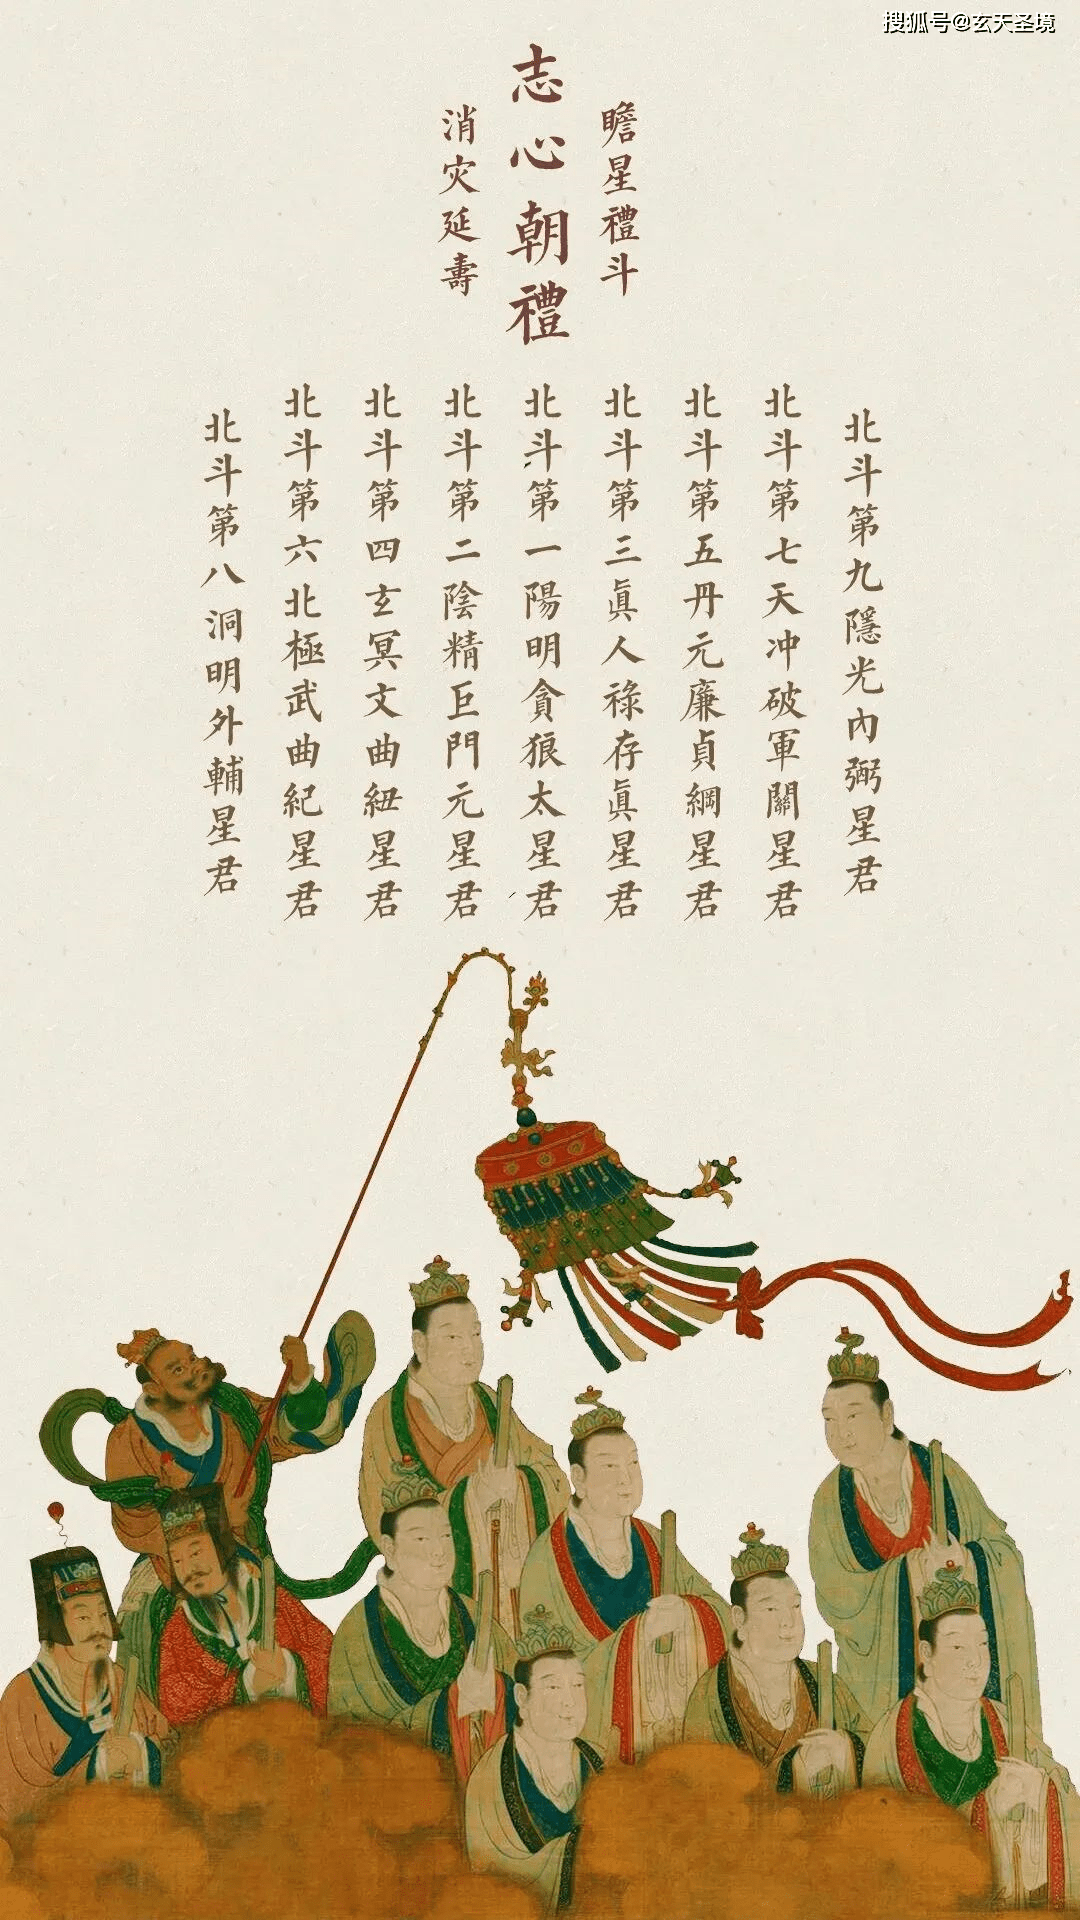 搜狐号@玄天圣境
瞻星禮斗
志心朝禮
消灾延壽
北斗第九隱光內弼星君
北斗第七天冲破軍關星君
北斗第五丹元廉貞綱星君
北斗第三眞人祿存眞星君
北斗第一陽明貪狼太星君
北斗第二陰精巨門元星君
北斗第四玄冥文曲紐星君
北斗第六北極武曲紀星君
北斗第八洞明外輔星君